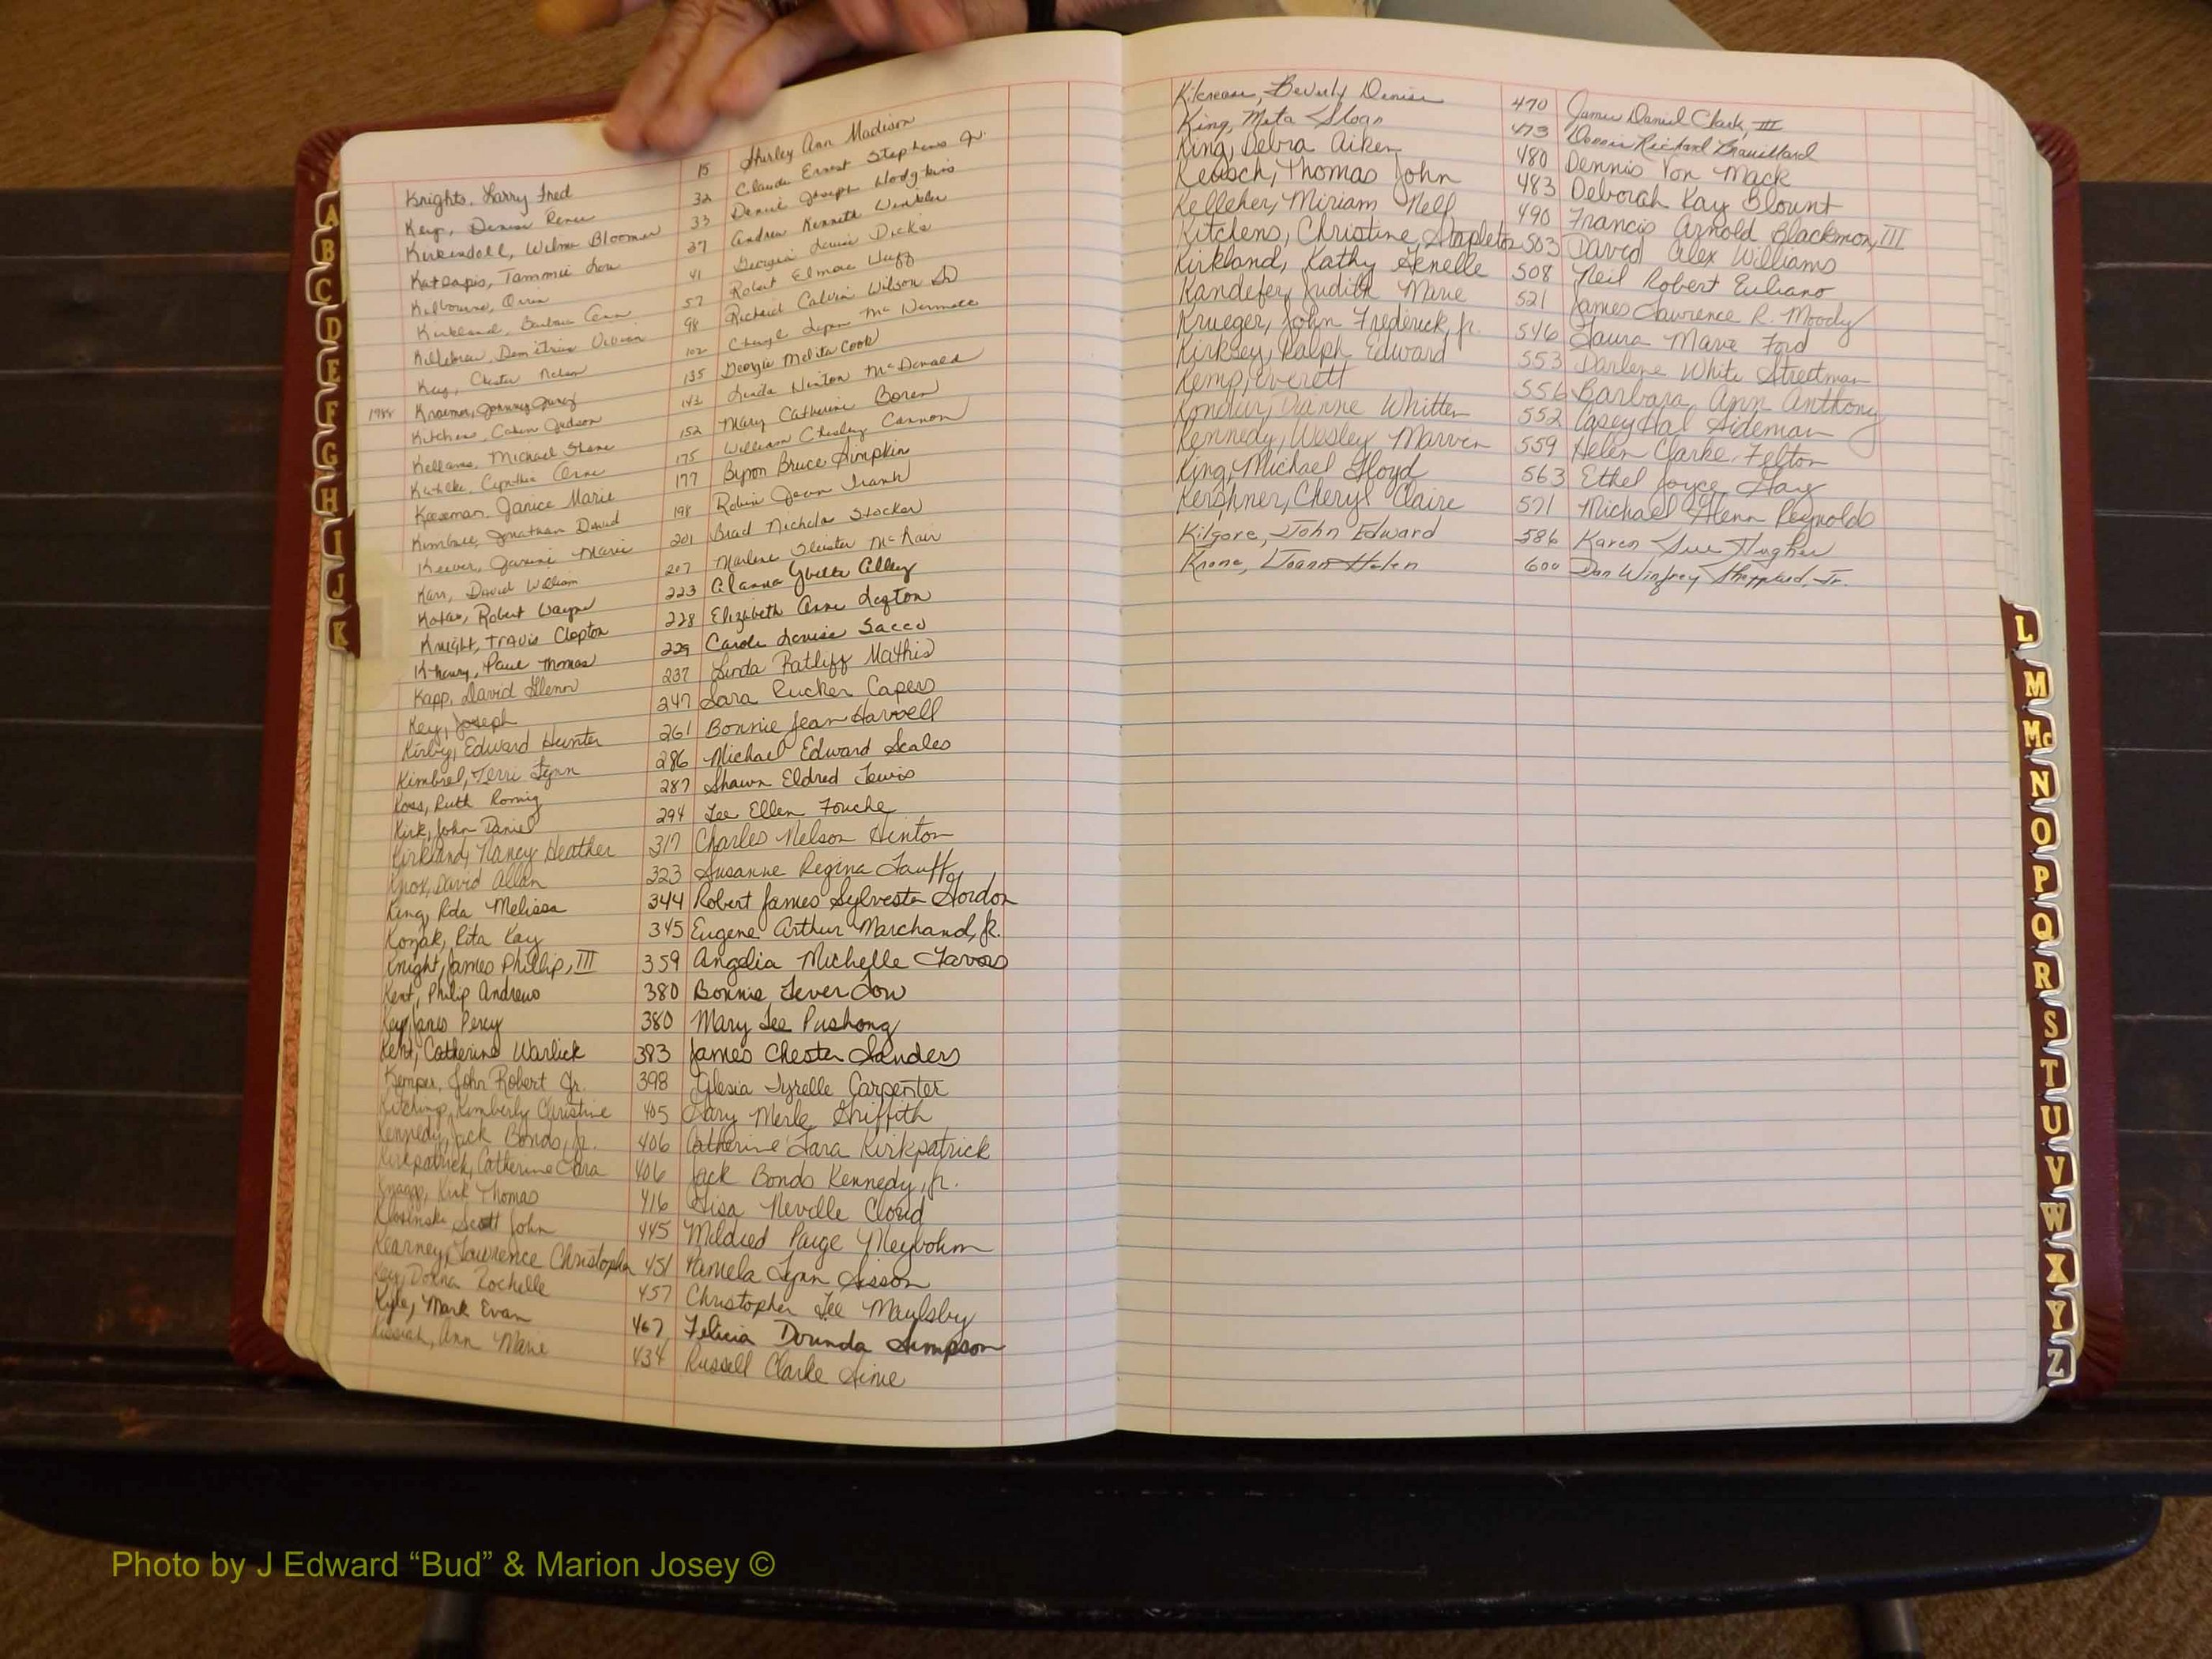 Knights, Larry Fred 15 Shirley Ann Madison
Key, Denise Renee 32 Claude Ernest Stephens Jr.
Kirkendoll, Wilma Bloomer 33 Dennis Joseph Hodgkins
Katsapis, Tammie Lou 37 Andrew Kenneth Winkler
Kilbourne, Orrin 41 Georgia Louise Dicks
Kirkland, Barbara Ann 57 Robert Elmore Huff
Killebrew, Vivian 98 Richard Calvin Wilson Sr
Key, Chester Nelson 102 Cheryl Lynn McDermott
1988 Kraemer, Johnny 135 Georgia Melita Cook
Kitchens, Calvin Judson 143 Linda Hinton McDonald
Kellams, Michael Shane 152 Mary Catherine Boren
Kahlke, Cynthia Anne 175 William Chesley Cannon
Janice Marie 177 Byron Bruce Simpkin
Jonathan David 198 Robin Jean
Keever, Janine Marie 201 Brad Nicholas Stocker
Karr, David William 207 Marlene McNair
Robert Wayne 223 Alanna Yvette Alley
Knight, Travis Clopton 228 Elizabeth Anne Layton
Paul Thomas 229 Carole Louise Sacco
Kapp, David Glenn 237 Linda Ratliff Mathis
Key, Joseph 247 Sara Rucker Capers
Kirby, Edward Hunter 261 Bonnie Jean Harvell
Kimbrel, Terri Lynn 286 Michael Edward Scales
Ruth Romig 287 Shawn Eldred Lewis
Kirk, John Daniel 294 Lee Ellen Fouche
Kirkland, Nancy Heather 317 Charles Nelson Hinton
Knox, David Allan 323 Susanne Regina
King, Rita Melissa 344 Robert James Sylvester Gordon
Rita Kay 345 Eugene Arthur Marchand, Jr.
Knight, James Phillip, III 359 Angelia Michelle Tavors
Kent, Philip Andrews 380 Bonnie Lever Dow
Key, Janis Percy 380 Mary Lee Pushong
Kent, Catherine Warlick 393 James Chester Sanders
Kemper, John Robert Jr. 398 Glesia Tyrelle Carpenter
Kitchings, Kimberly Christine 405 Gary Merle Griffith
Kennedy, Jack Bonds, Jr. 406 Catherine Tara Kirkpatrick
Kirkpatrick, Catherine Tara 406 Jack Bonds Kennedy, Jr.
Knapp, Kirk Thomas 416 Lisa Neville Cloud
Klosinski, Scott John 445 Mildred Paige Meybohm
Kearney, Lawrence Christopher 451 Pamela Lynn Sisson
Key, Donna Rochelle 457 Christopher Lee Maulsby
Kyle, Mark Evan 467 Felicia Dorinda Simpson
Kissiah, Ann Marie 434 Russell Clarke Sime
Kilcrease, Beverly Denise 470 James Daniel Clark, III
King, Meta Sloan 473 Dennis Richard Brouillard
King, Debra Aiken 480 Dennis Von Mack
Keusch, Thomas John 483 Deborah Kay Blount
Kelleher, Miriam Nell 490 Francis Arnold Blackmon, III
Kitchens, Christine Stapleton 503 David Alex Williams
Kirkland, Kathy Jenelle 508 Neil Robert Euliano
Kandefer, Judith Marie 521 James Lawrence R. Moody
Krueger, John Frederick, Jr. 546 Laura Marie Ford
Kirksey, Ralph Edward 553 Darlene White Streetman
Kemp, Everett 556 Barbara Ann Anthony
Dianne Whitten 552 Casey Hal Sideman
Kennedy, Wesley Marvin 559 Helen Clarke Felton
King, Michael Lloyd 563 Ethel Joyce Gay
Kershner, Cheryl Claire 571 Michael Glenn Reynolds
Kilgore, John Edward 586 Karen Sue Hughes
Krone, Joann Helen 600 Dan Winfrey Sheppard, Jr.
A
B
C
D
E
F
G
H
I
J
K
L
M
Mc
N
O
P
Q
R
S
T
U
V
W
X
Y
Z
Photo by J Edward “Bud” & Marion Josey ©